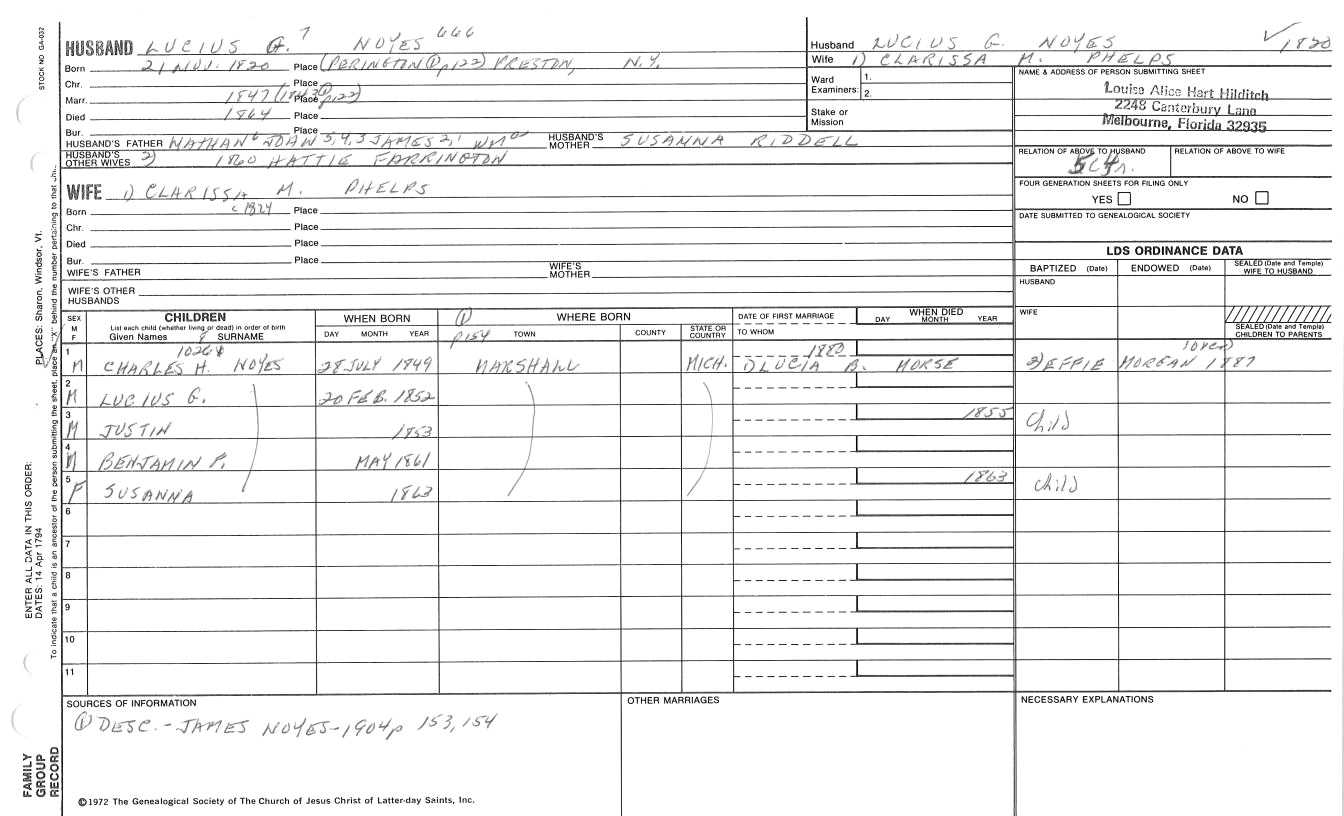 STOCK NO GA-032
HUSBAND LUCIUS G. 7 NOYES 666
Born 21 NOV. 1820 Place (PERINGTON ① p122) PRESTON, N.Y.
Chr. Place
Marr. 1847 (1843 ① p122) Place
Died 1864 Place
Bur. Place
HUSBAND'S FATHER NATHAN 6 JOHN 5,4,3 JAMES 2,1 WM 0 HUSBAND'S MOTHER SUSANNA RIDDELL
HUSBAND'S OTHER WIVES 2) 1860 HATTIE FARRINGTON
WIFE 1) CLARISSA M. PHELPS
Born c 1824 Place
Chr. Place
Died Place
Bur. Place
WIFE'S FATHER WIFE'S MOTHER
WIFE'S OTHER HUSBANDS
Husband LUCIUS G. NOYES ✓1820
Wife 1) CLARISSA M. PHELPS
Ward Examiners: 1.
2.
Stake or Mission
NAME & ADDRESS OF PERSON SUBMITTING SHEET
Louise Alice Hart Hilditch
2248 Canterbury Lane
Melbourne, Florida 32935
RELATION OF ABOVE TO HUSBAND RELATION OF ABOVE TO WIFE
FOUR GENERATION SHEETS FOR FILING ONLY
YES NO
DATE SUBMITTED TO GENEALOGICAL SOCIETY
LDS ORDINANCE DATA
BAPTIZED (Date) ENDOWED (Date) SEALED (Date and Temple) WIFE TO HUSBAND
HUSBAND
WIFE
SEALED (Date and Temple) CHILDREN TO PARENTS
SEX M F CHILDREN WHEN BORN ① WHERE BORN DATE OF FIRST MARRIAGE WHEN DIED
List each child (whether living or dead) in order of birth
Given Names 8 SURNAME DAY MONTH YEAR p154 TOWN COUNTY STATE OR COUNTRY TO WHOM DAY MONTH YEAR
1 M 1026 CHARLES H. NOYES 28 JULY 1849 MARSHALL MICH. 1882 1) LUCIA B. MORSE (over) 2) EFFIE MORGAN 1887
2 M LUCIUS G. 20 FEB. 1852
3 M JUSTIN 1853 1855 Child
4 M BENJAMIN P. MAY 1861
5 F SUSANNA 1863 1863 Child
6
7
8
9
10
11
SOURCES OF INFORMATION OTHER MARRIAGES NECESSARY EXPLANATIONS
① DESC. - JAMES NOYES - 1904 p 153, 154
©1972 The Genealogical Society of The Church of Jesus Christ of Latter-day Saints, Inc.
FAMILY GROUP RECORD
ENTER ALL DATA IN THIS ORDER:
DATES: 14 Apr 1794
PLACES: Sharon, Windsor, Vt.
To indicate that a child is an ancestor of the person submitting the sheet, place an "X" behind the number pertaining to that